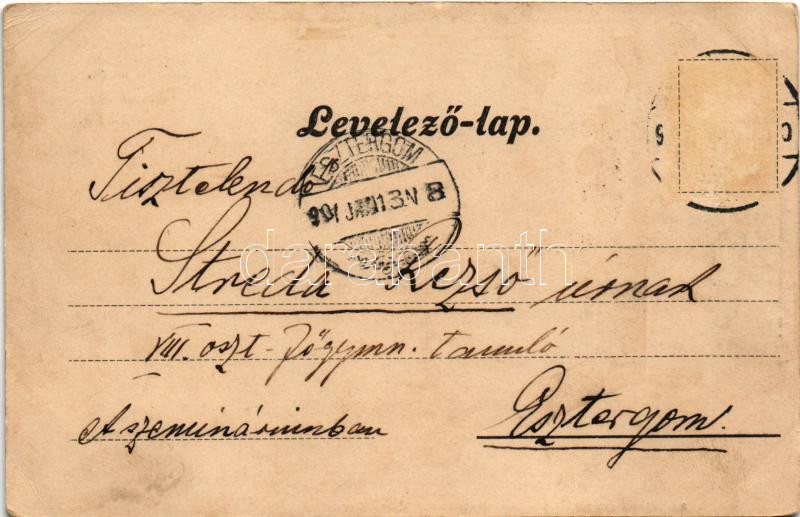 Levelező-lap.
ESZTERGOM
901 JAN 13 N 8
Tisztelendő
Streda Rezső úrnak
VIII. oszt. főgymn. tanuló
A szemináriumban
Esztergom.
darabanth